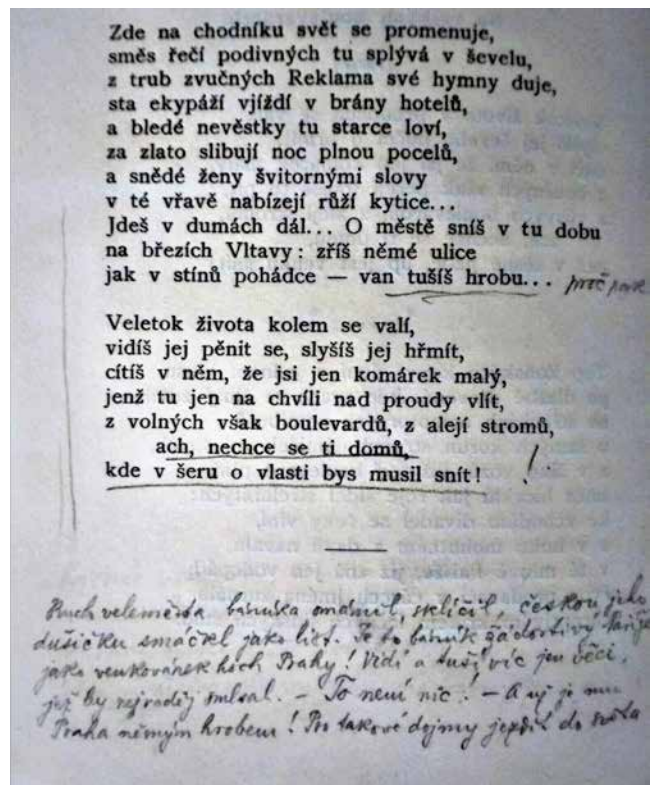 Zde na chodníku svět se promenuje,
směs řečí podivných tu splývá v ševelu,
z trub zvučných Reklama své hymny duje,
sta ekypáží vjíždí v brány hotelů,
a bledé nevěstky tu starce loví,
za zlato slibují noc plnou pocelů,
a snědé ženy švitornými slovy
v té vřavě nabízejí růží kytice...
Jdeš v dumách dál... O městě sníš v tu dobu
na březích Vltavy: zříš němé ulice
jak v stínů pohádce — van tušíš hrobu... proč
Veletok života kolem se valí,
vidíš jej pěnit se, slyšíš jej hřmít,
cítíš v něm, že jsi jen komárek malý,
jenž tu jen na chvíli nad proudy vlít,
z volných však boulevardů, z alejí stromů,
ach, nechce se ti domů,
kde v šeru o vlasti bys musil snít! !
Ruch veleměsta básníka omámil, sklíčil, českou jeho
dušičku smáčkl jako list. Je to básník žádostivý
jako venkovánek hoch Prahy! Vidí a tuší víc jen věcí,
jež by nejraděj smlsal. – To není nic! – A už je mu
Praha němým hrobem! Pro takové dojmy jezdit do světa